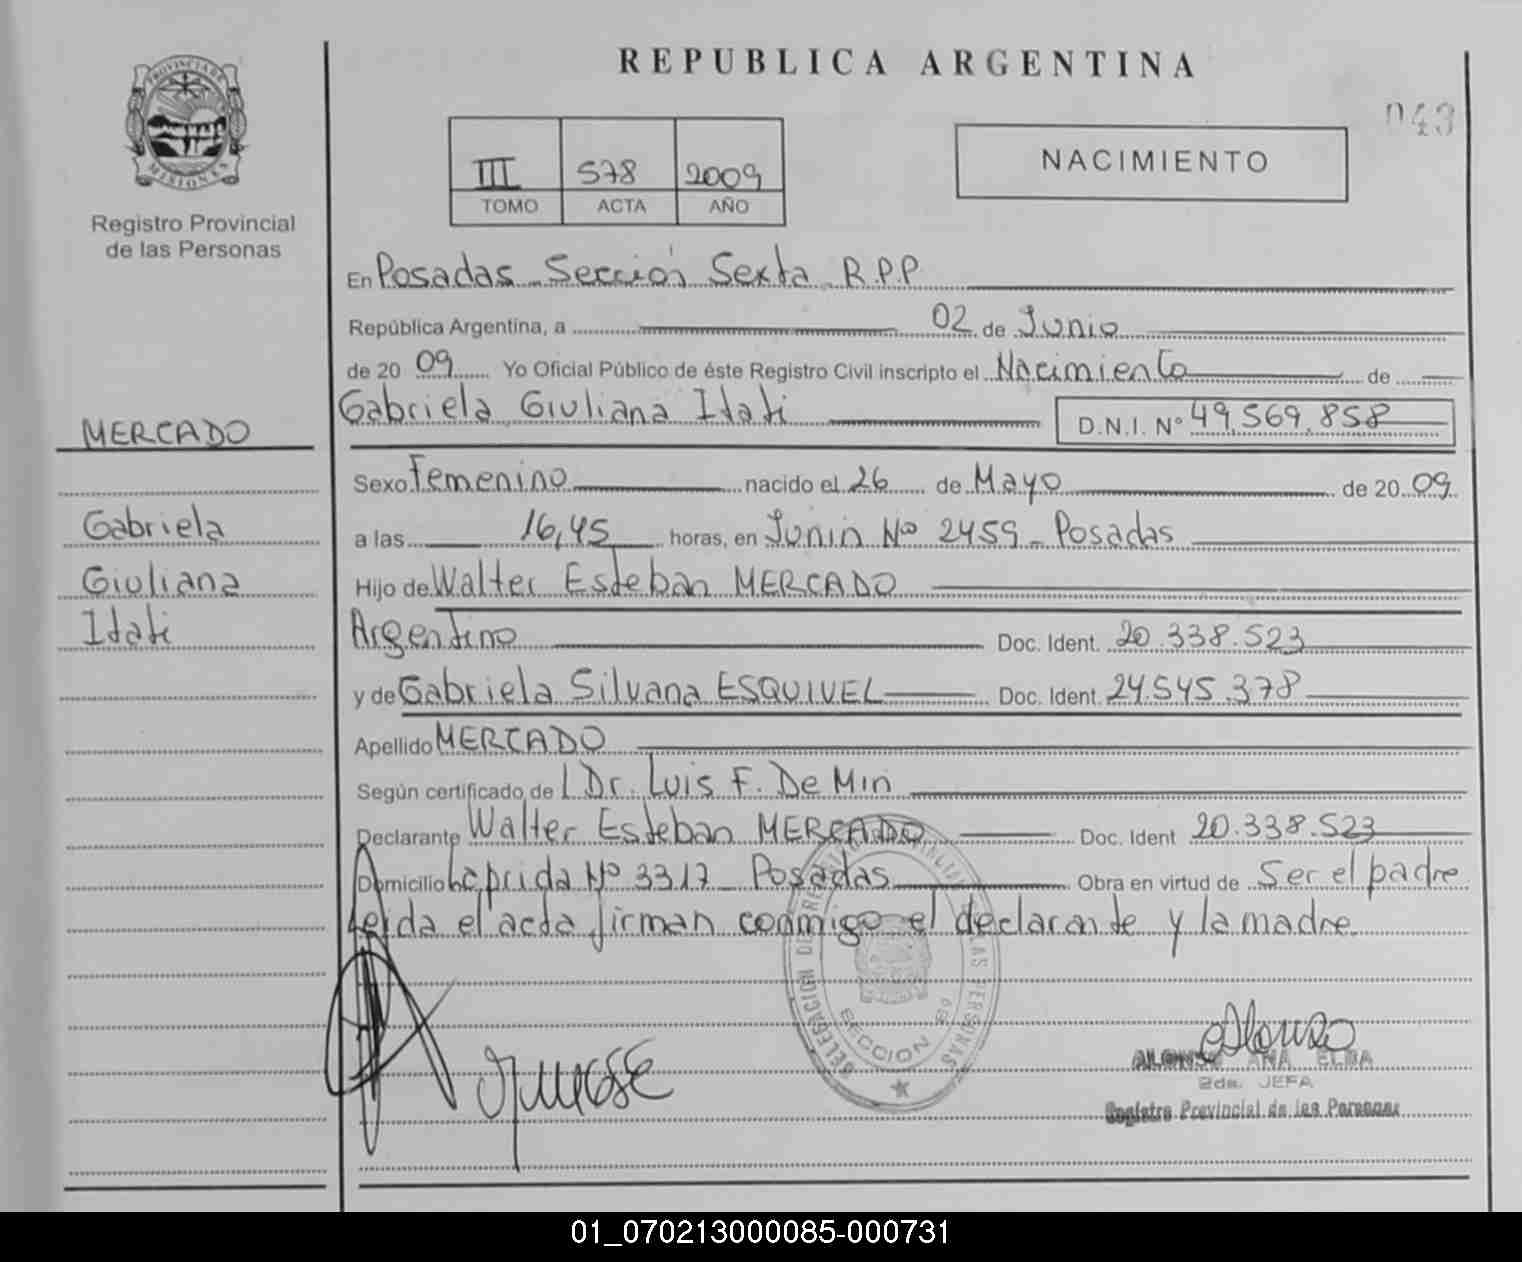 REPUBLICA ARGENTINA
043
PROVINCIA DE
MISIONES
Registro Provincial
de las Personas
III 578 2009
TOMO ACTA AÑO
NACIMIENTO
En Posadas - Sección Sexta R.P.P
República Argentina, a 02 de Junio
de 20 09 Yo Oficial Público de éste Registro Civil inscripto el Nacimiento de
Gabriela Giuliana Itati D.N.I. Nº 49.569.858
MERCADO
Gabriela
Giuliana
Itati
Sexo Femenino nacido el 26 de Mayo de 20 09
a las 16,45 horas, en Junin Nº 2459 - Posadas
Hijo de Walter Esteban MERCADO
Argentino Doc. Ident. 20.338.523
y de Gabriela Silvana ESQUIVEL Doc. Ident. 24.545.378
Apellido MERCADO
Según certificado de l Dr. Luis F. De Min
Declarante Walter Esteban MERCADO Doc. Ident 20.338.523
Domicilio Laprida Nº 3317 - Posadas Obra en virtud de Ser el padre
Leida el acta firman conmigo el declarante y la madre.
SECCION 6º
ALONSO ANA ELBA
2da. JEFA
Registro Provincial de las Personas
01_070213000085-000731